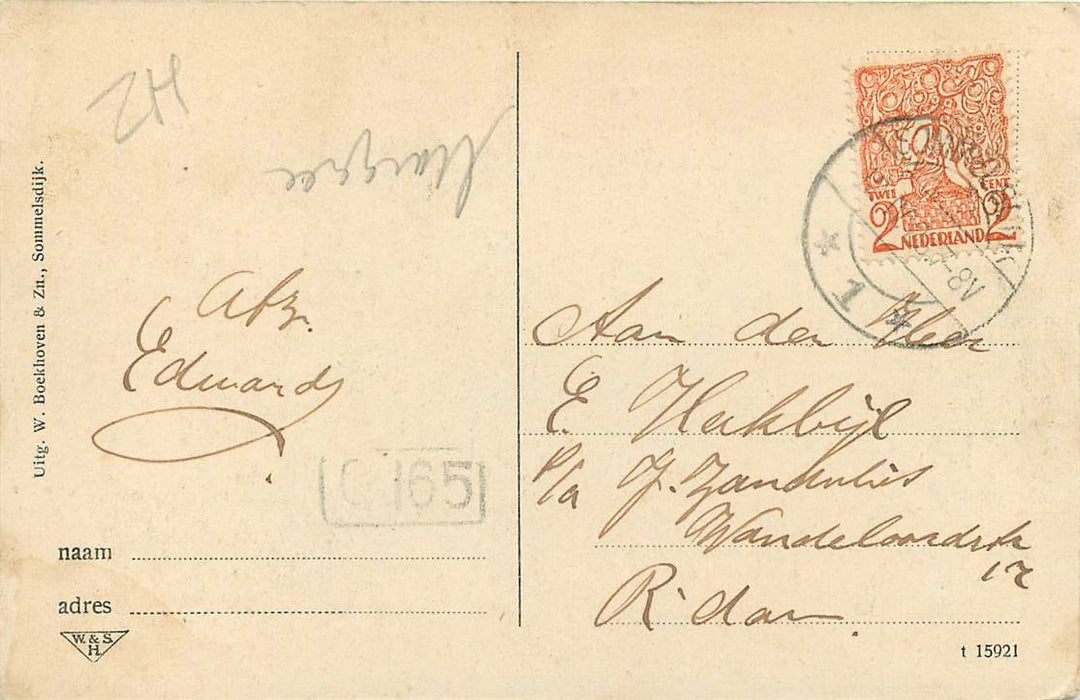 ZH
Uitg. W. Boekhoven & Zn., Sommelsdijk.
Afz.
Edwards
165
naam
adres
W. & S.
H.
TWEE CENT
2 NEDERLAND 2
8V
1
Aan den Heer
E. Hakbijl
p/a J. Zandvliet
R'dam
t 15921